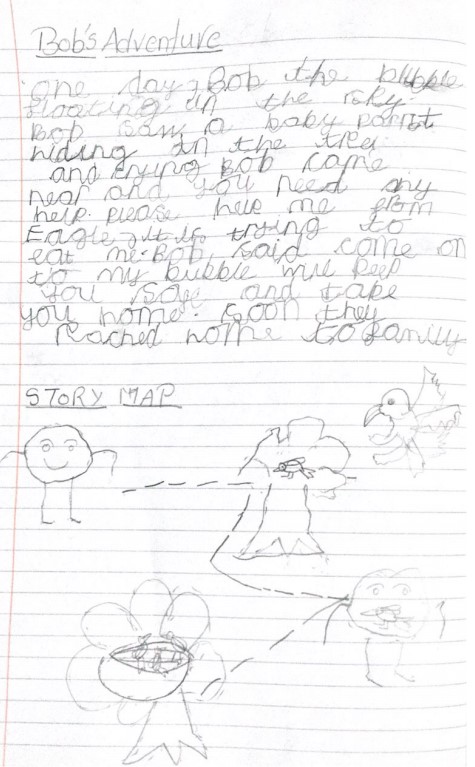 Bob's Adventure
one day, Bob the bubble
floating in the sky.
Bob saw a baby parrot
hiding in the tree
and crying Bob came
near and you need any
help. please help me from
Eagle, it is trying to
eat me. Bob, said come on
to my bubble will keep
you safe and take
you home. Soon they
reached home to family
STORY MAP